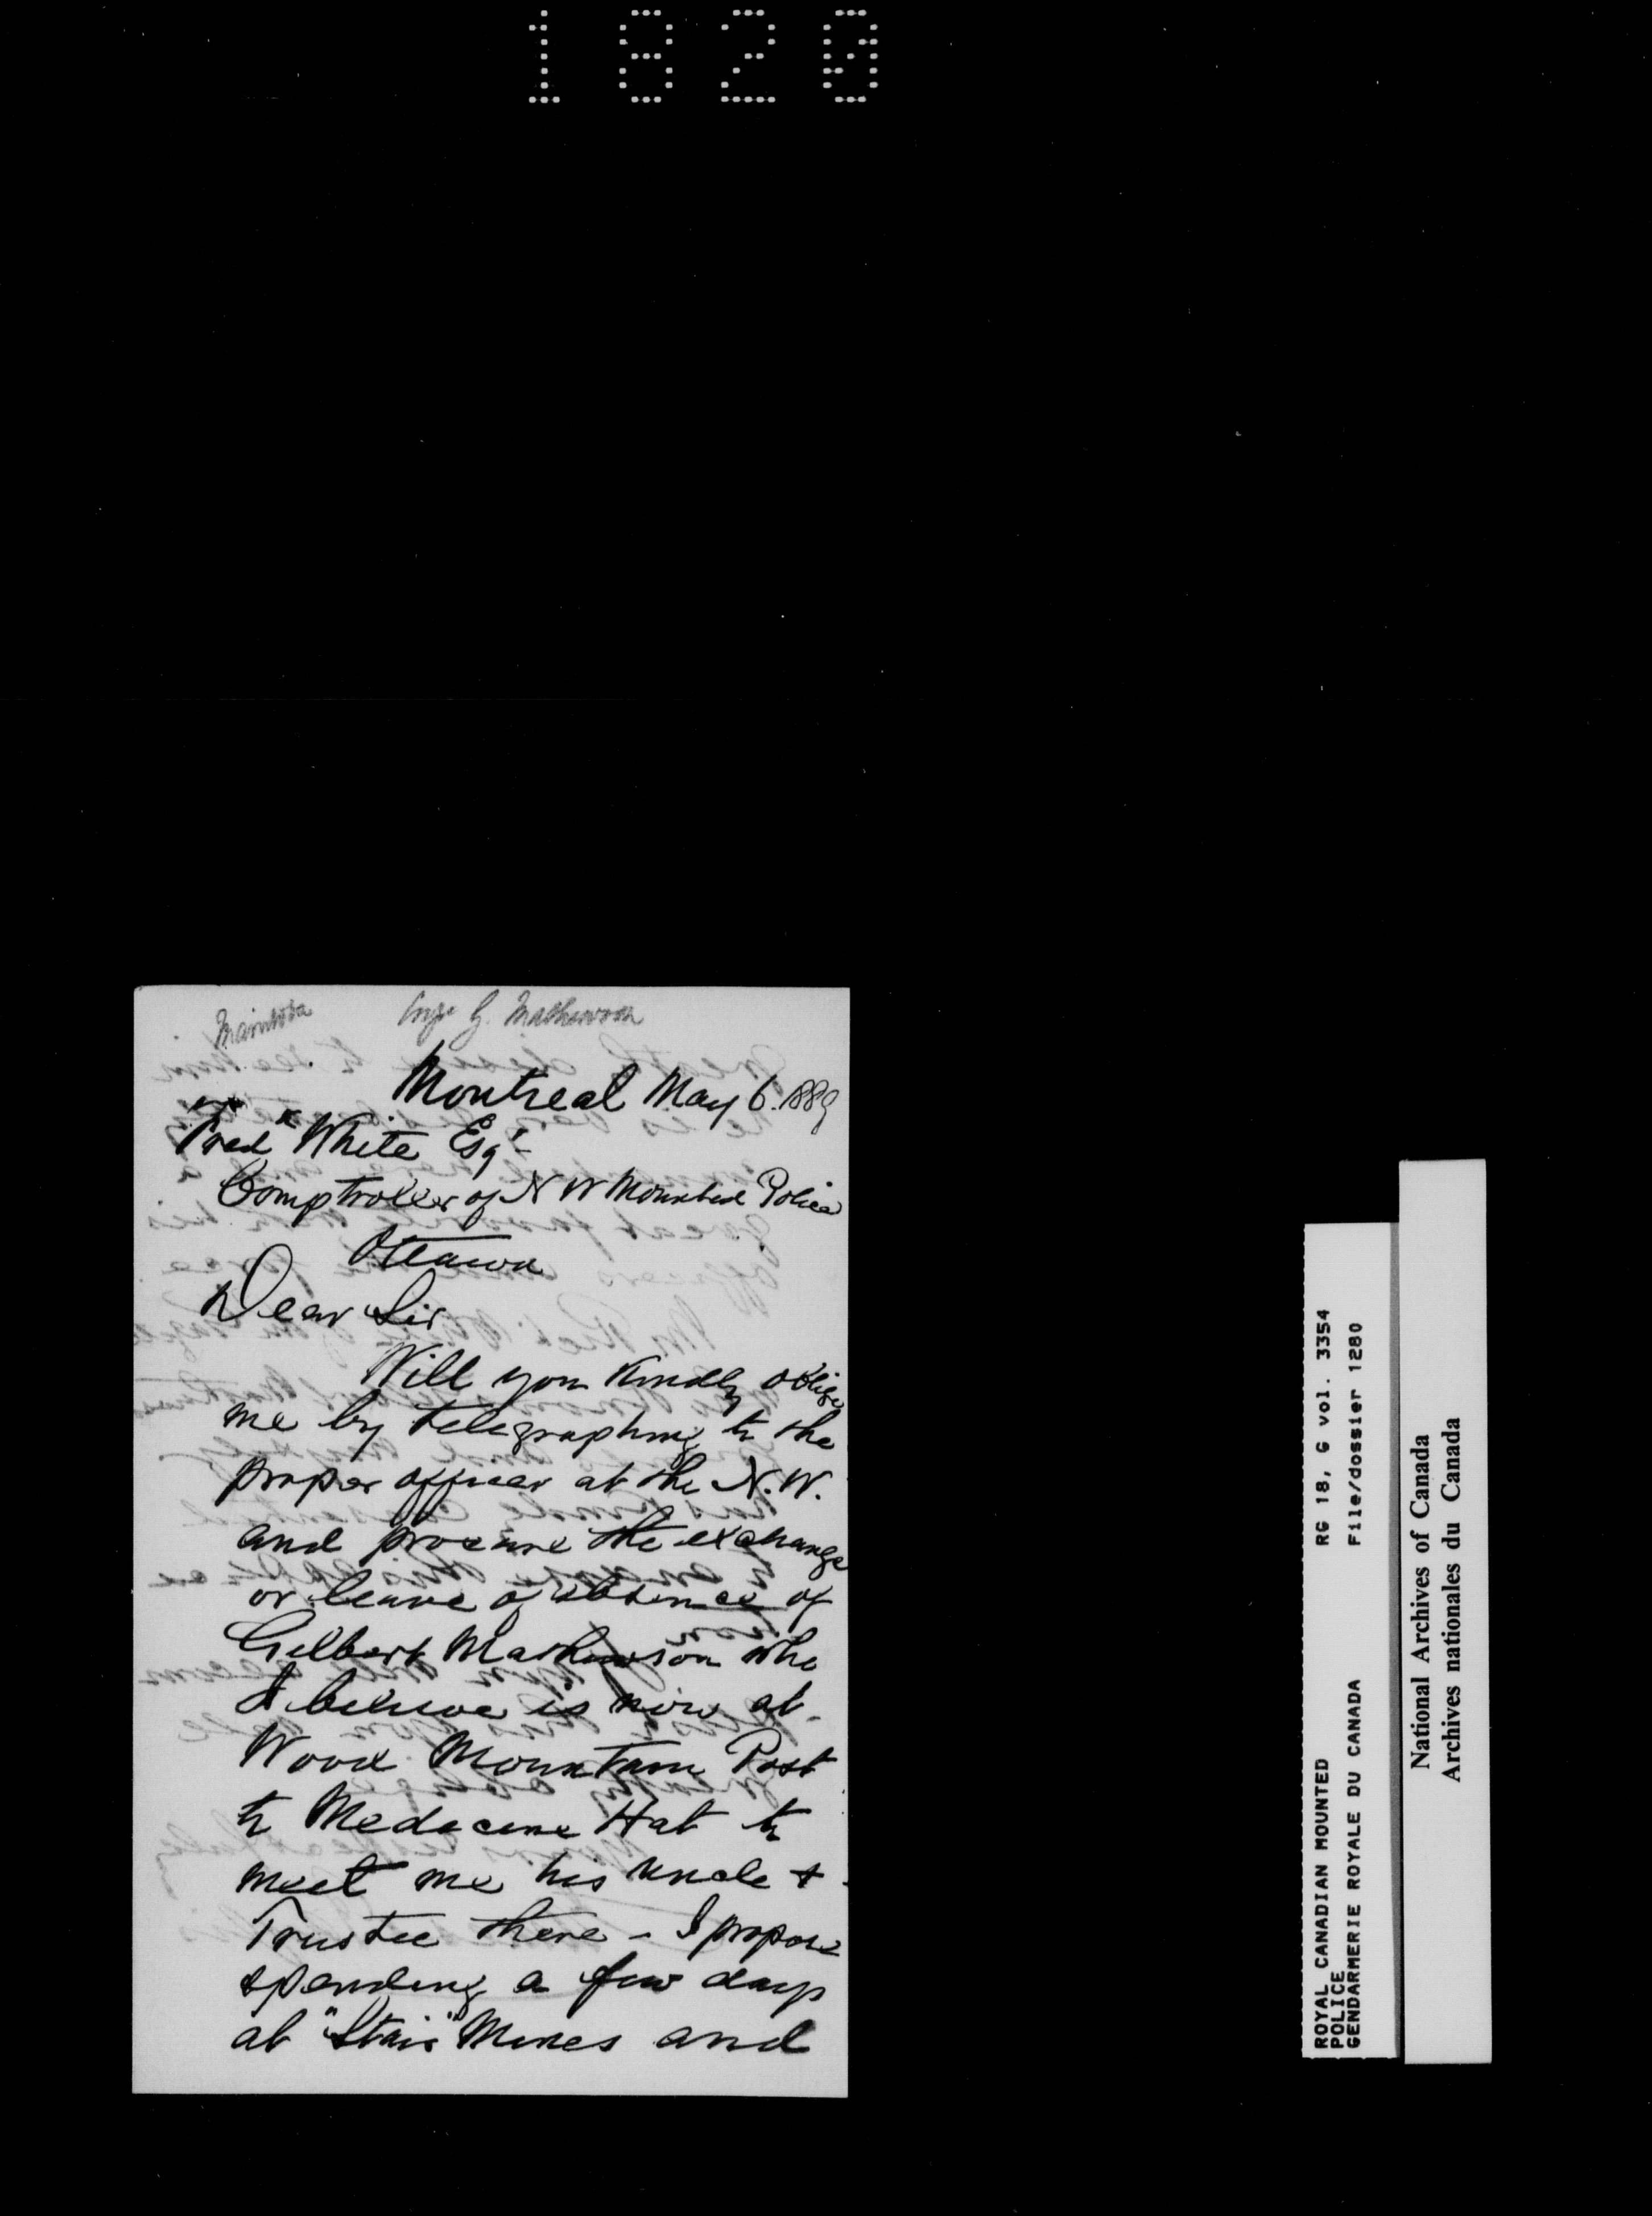 1820
Manitoba
Corpl G. Mathewson
Montreal May 6. 1889
Fredk White Esqr
Comptroller of N W Mounted Police
Ottawa
Dear Sir
Will you kindly oblige
me by telegraphing to the
proper officer at the N.W.
and procure the exchange
or leave of absence of
Gilbert Mathewson who
I believe is now at
Wood Mountain Post
to Medecine Hat to
meet me his uncle &
Trustee there - I propose
spending a few days
at "Stair" Mines and
ROYAL CANADIAN MOUNTED
POLICE
GENDARMERIE ROYALE DU CANADA
RG 18, G vol. 3354
File/dossier 1280
National Archives of Canada
Archives nationales du Canada